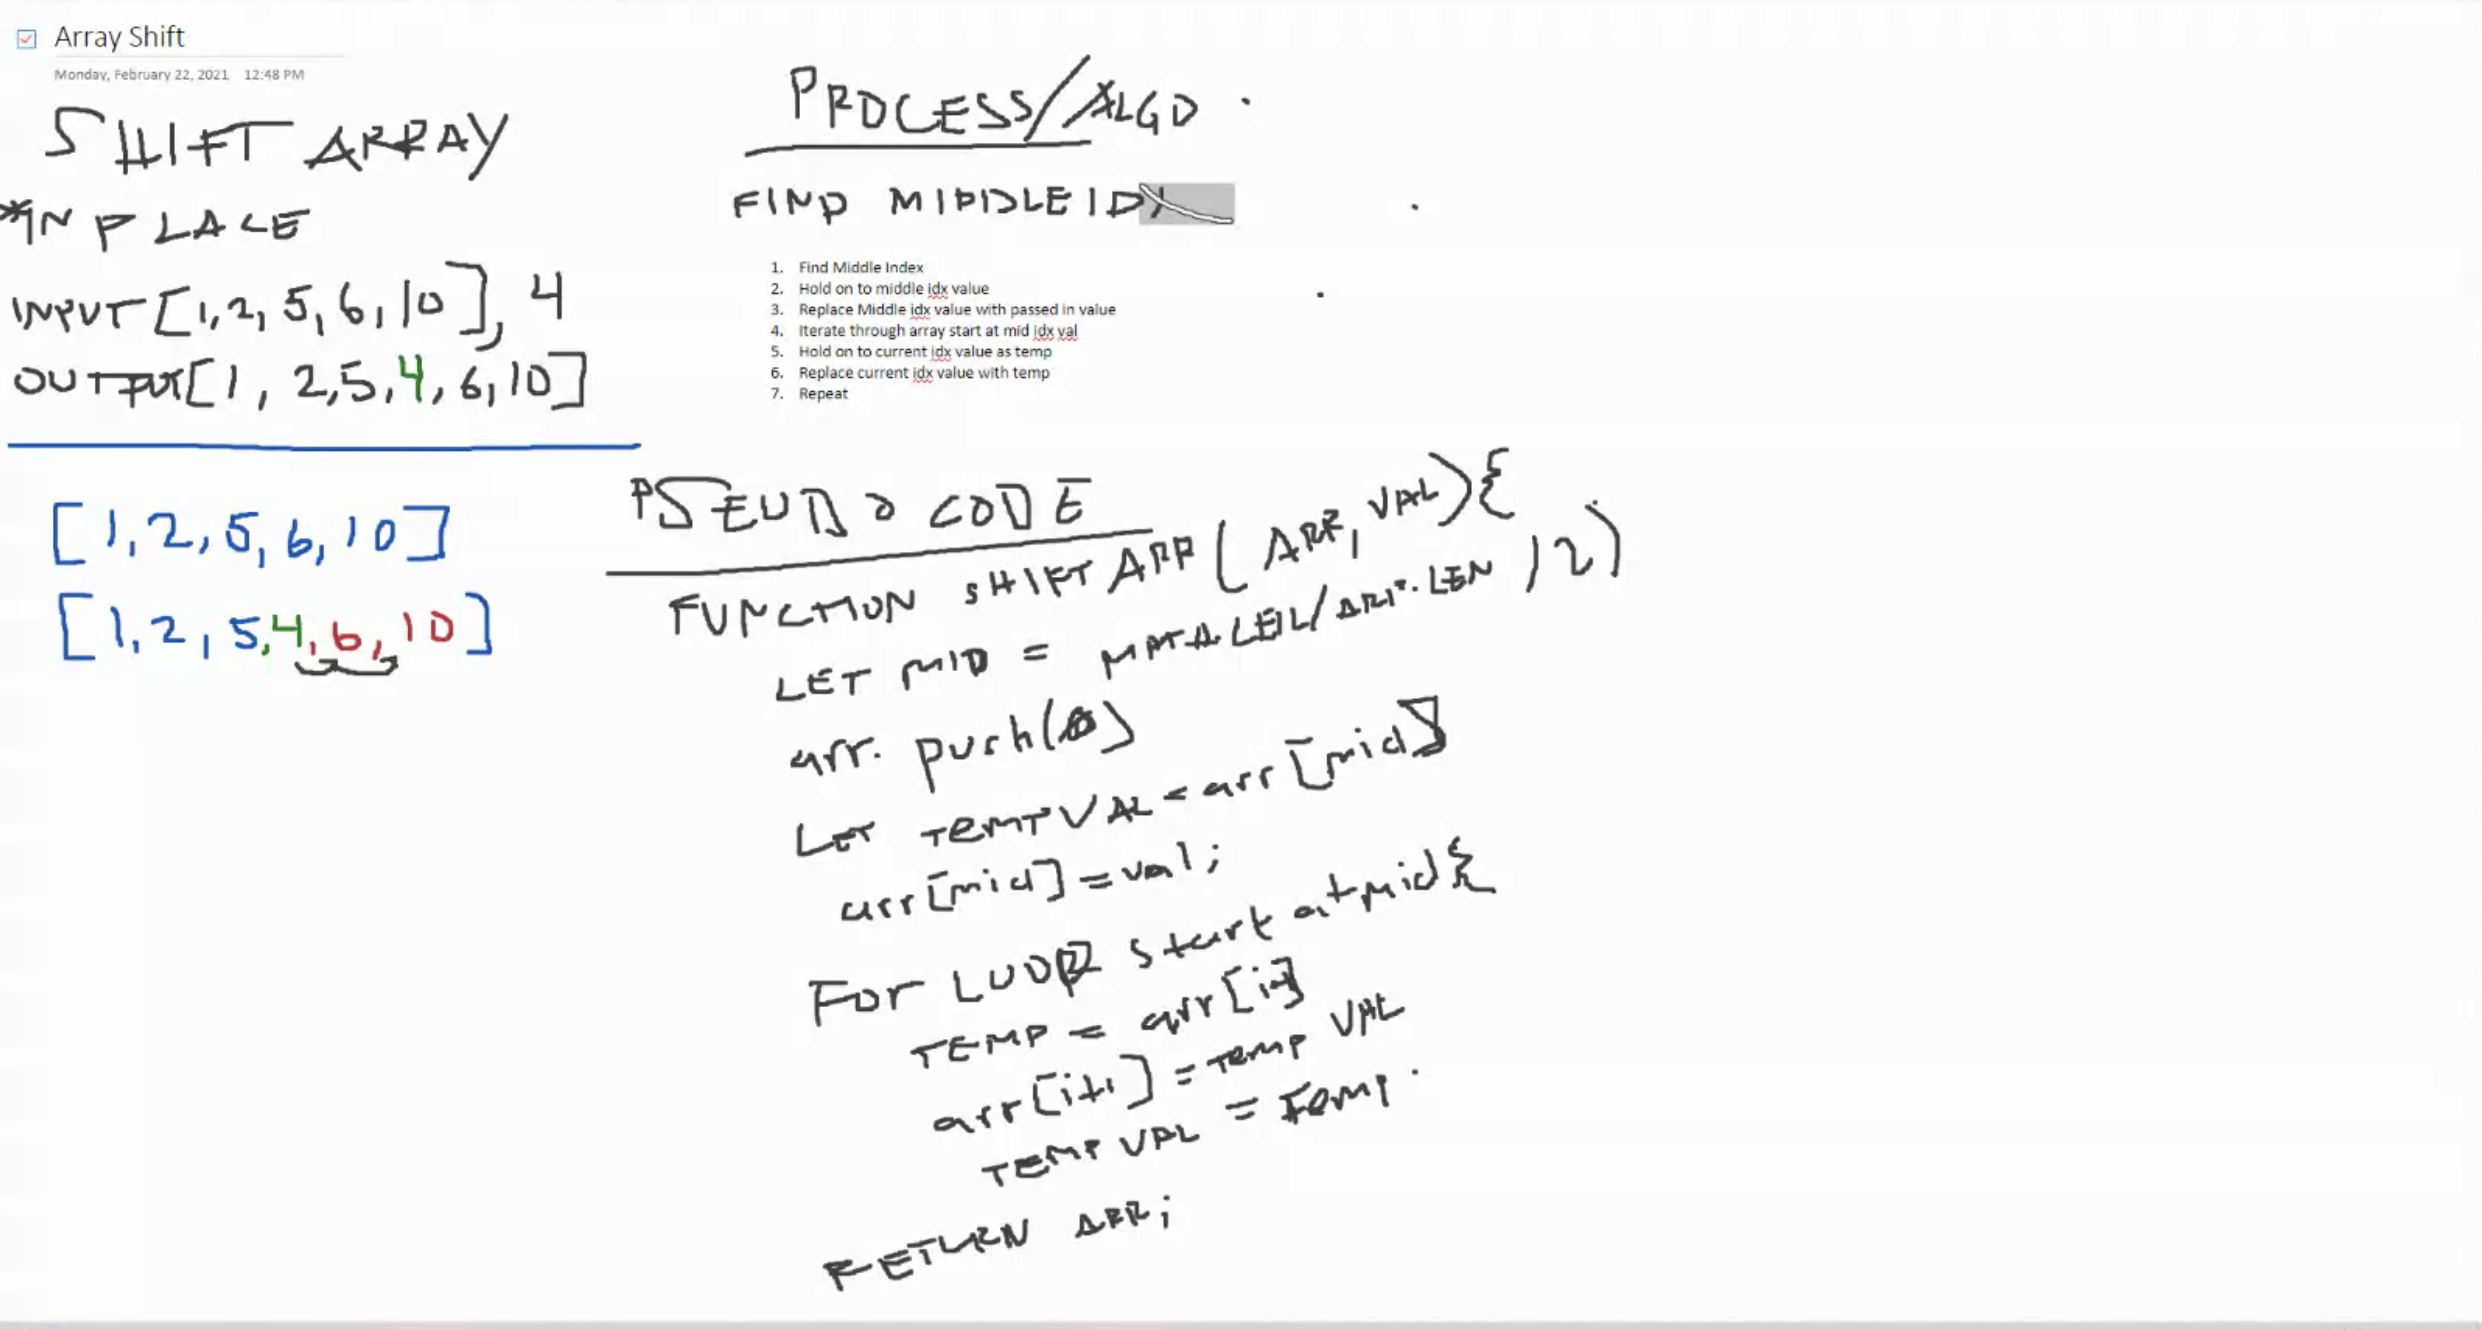 Array Shift
Monday, February 22, 2021 12:48 PM
SHIFT ARRAY
*IN PLACE
INPUT [1,2,5,6,10], 4
OUTPUT [1, 2,5,4,6,10]
[1,2,5,6,10]
[1,2,5,4,6,10]
PROCESS/ALGO
FIND MIDDLE ID
1. Find Middle Index
2. Hold on to middle idx value
3. Replace Middle idx value with passed in value
4. Iterate through array start at mid idx val
5. Hold on to current idx value as temp
6. Replace current idx value with temp
7. Repeat
PSEUDO CODE
FUNCTION SHIFT ARR (ARR, VAL){
LET MID = MATH.CEIL/ARR.LEN /2)
arr. push(0)
LET TEMPVAL = arr [mid]
arr[mid] = val;
For LOOP start at mid{
TEMP = arr[i]
arr[i+1] = TEMP VAL
TEMP VAL = temp
RETURN ARR;